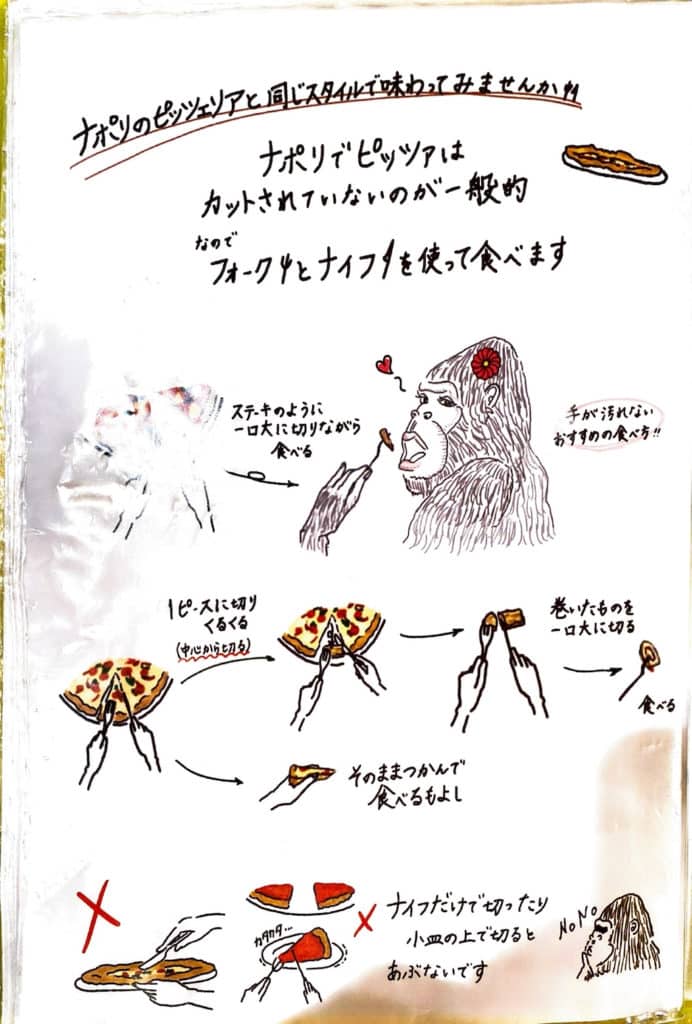 ナポリのピッツェリアと同じスタイルで味わってみませんか!!
ナポリでピッツァは
カットされていないのが一般的
なので
フォークとナイフを使って食べます
ステキのように
一口大に切りながら
食べる
手が汚れない
おすすめの食べ方!!
1ピースに切り
くるくる
(中心から切る)
巻いたものを
一口大に切る
食べる
そのままつかんで
食べるもよし
カタカタ…
ナイフだけで切ったり
小皿の上で切ると
あぶないです
NoNo